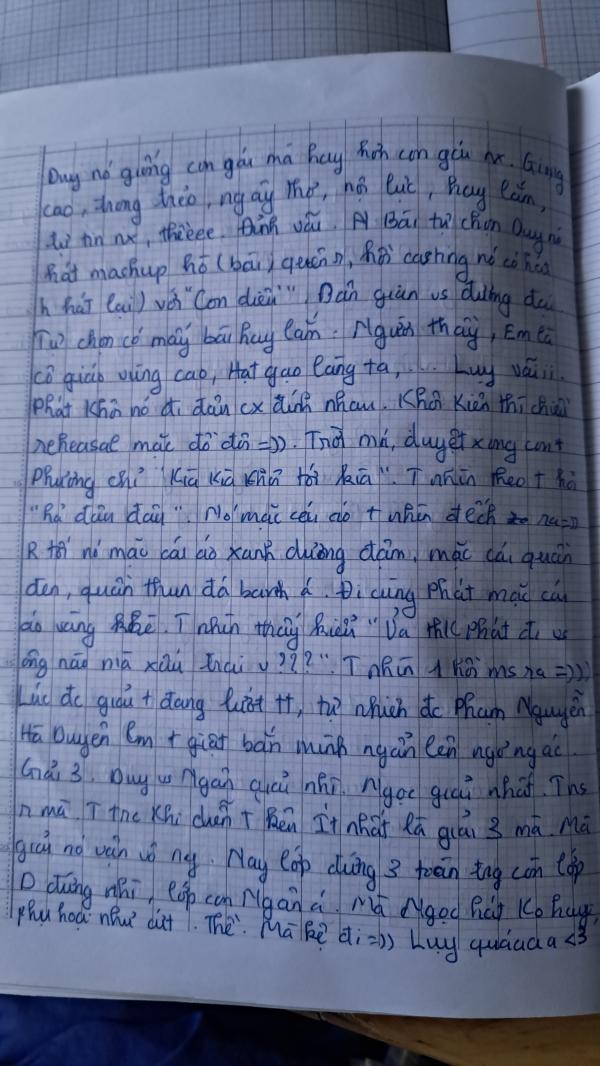 Duy nó giống con gái mà hay hơn con gái nx. Giọng
cao, trong trẻo, ngây thơ, nội lực, hay lắm,
tự tin nx, thièeee. Đỉnh vãi. A Bài tự chọn Duy nó
hát machup hồ (bài) quên r, hồi casting nó có hát
h hát lại) với "Con diều", Dân gian vs đương đại.
Tự chọn có mấy bài hay lắm. Người thầy, Em là
cô giáo vùng cao, Hạt gạo làng ta, .... Luy vãiii.
Phát Khôi nó đi đản cx đính nhau. Khôi Kiên thì chiều
reheasal mặc đồ đôi =)). Trời má, duyệt xong con t
Phương chỉ "Kìa Kìa Khôi tới kìa". T nhìn theo t hỏi
"hả đâu đâu". Nó mặc cái áo t nhìn đếch ra =))
R tối nó mặc cái áo xanh dương đậm, mặc cái quần
đen, quần thun đá banh á. Đi cùng Phát mặc cái
áo vàng. T nhìn thấy kiểu "Ủa thk Phát đi vs
ông nào mà xấu trai v???". T nhìn 1 hồi ms ra =)))
Lúc đc giải t đang lướt tt, tự nhiên đc Phạm Nguyễn
Hà Duyên lm t giật bắn mình ngẩn lên ngơ ngác.
Giải 3. Duy vs Ngân giải nhì. Ngọc giải nhất. Ths
r mà. T trc khi diễn t bên Ít nhất là giải 3 mà. Mà
giải nó vận vô ny. Nay lớp đứng 3 toàn trg còn lớp
D đứng nhì, lớp con Ngân á. Mà Ngọc hát ko hay,
phụ hoạ như cứt. Thề. Mà kệ đi =)) Luỵ quáaaa <3